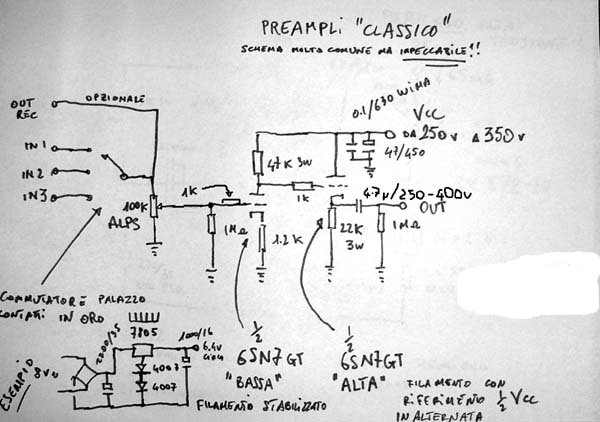 PREAMPLI "CLASSICO"
SCHEMA MOLTO COMUNE MA IMPECCABILE!!
OUT
REC
OPZIONALE
0.1/630 WIMA
VCC
DA 250V A 350V
47/450
IN 1
IN 2
IN 3
47K 3W
1K
1K
4.7µ/250-400V
OUT
100K
ALPS
1MΩ
1.2K
22K
3W
1MΩ
COMMUTATORE PALAZZO
CONTATTI IN ORO
1/2
6SN7GT
"BASSA"
1/2
6SN7GT
"ALTA"
ESEMPIO
8V
2200/35
7805
1000/16
6.4V
4007
4007
FILAMENTO STABILIZZATO
FILAMENTO CON
RIFERIMENTO 1/2 VCC
IN ALTERNATA